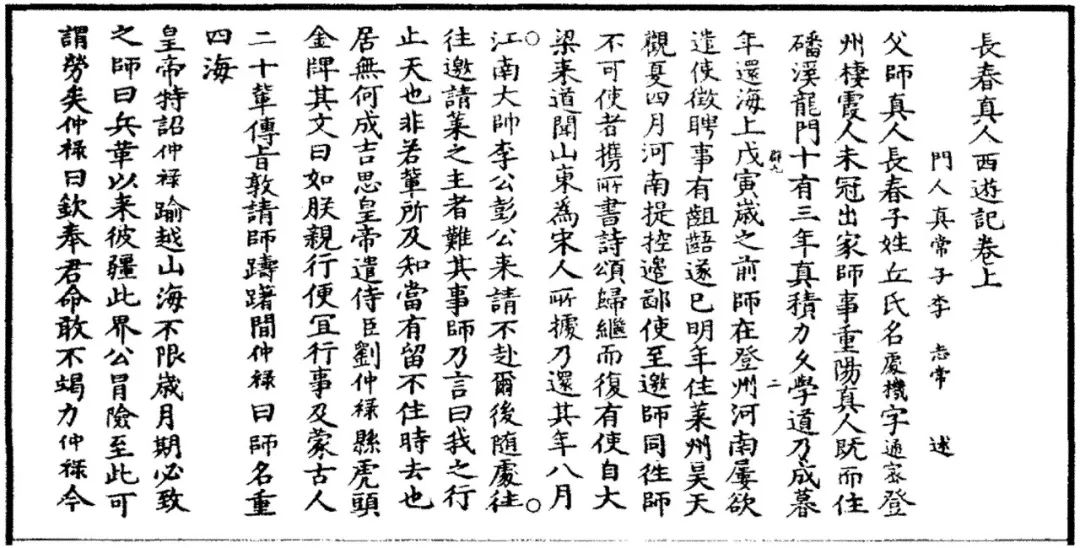 長春真人西遊記卷上
門人真常子李志常述
父師真人長春子姓丘氏名處機字通密登
州棲霞人未冠出家師事重陽真人既而住
磻溪龍門十有三年真積力久學道乃成暮
年還海上戊寅歲之前師在登州河南屢欲
遣使徵聘事有齟齬遂已明年住萊州昊天
觀夏四月河南提控邊鄙使至邀師同往師
不可使者攜所書詩頌歸繼而復有使自大
梁來道聞山東為宋人所據乃還其年八月
江南大帥李公彭公來請不赴爾後隨處往
往邀請萊之主者難其事師乃言曰我之行
止天也非若輩所及知當有留不住時去也
居無何成吉思皇帝遣侍臣劉仲祿縣虎頭
金牌其文曰如朕親行便宜行事及蒙古人
二十輩傳旨敦請師躊躇間仲祿曰師名重
四海
皇帝特詔仲祿踰越山海不限歲月期必致
之師曰兵革以來彼疆此界公冒險至此可
謂勞矣仲祿曰欽奉君命敢不竭力仲祿今